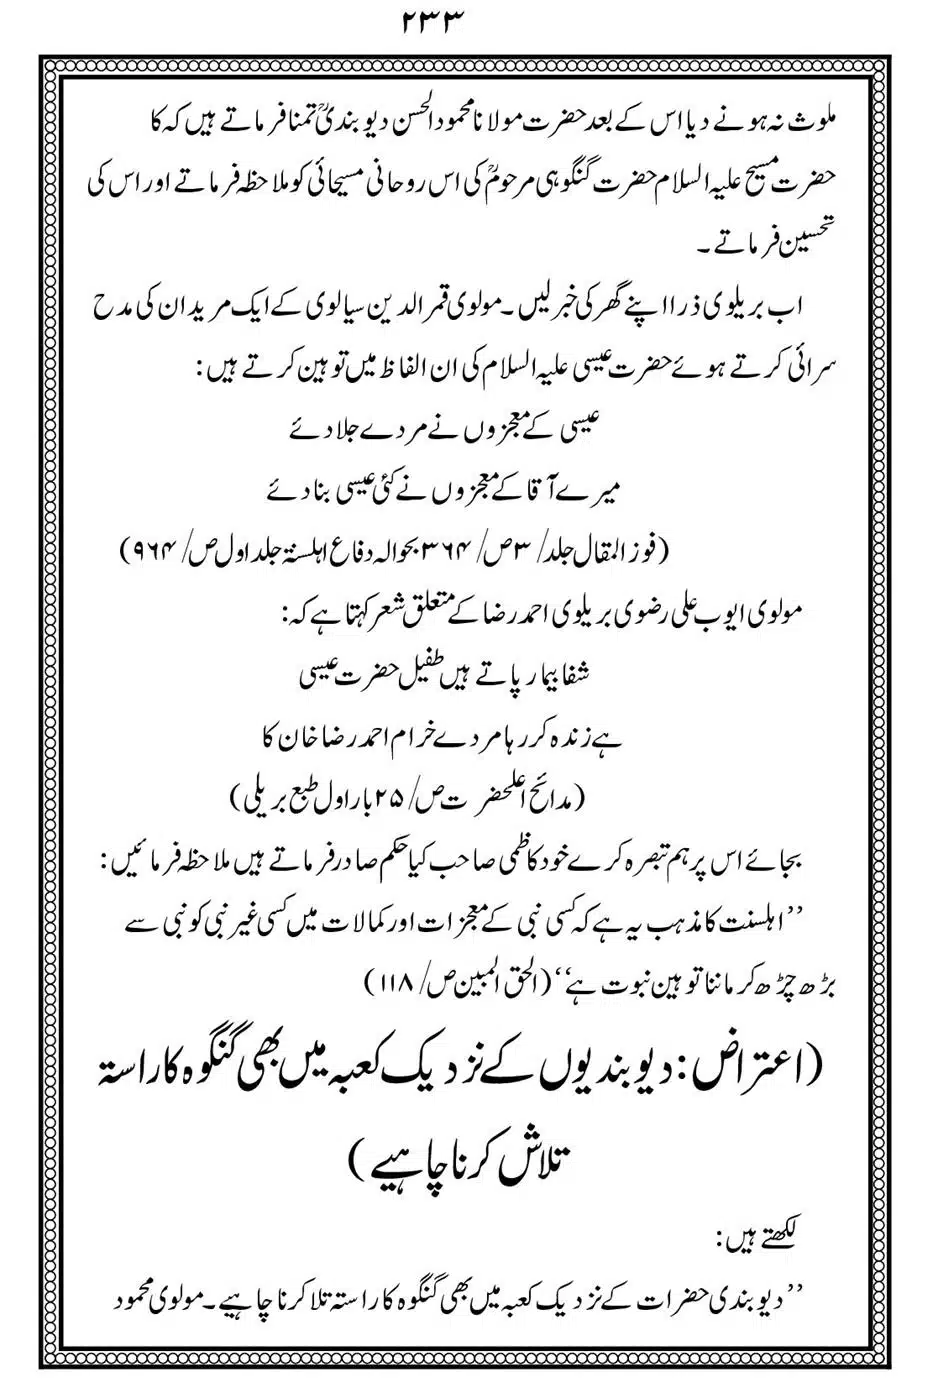 ۲۳۳
ملوث نہ ہونے دیا اس کے بعد حضرت مولانا محمود الحسن دیوبندیؒ تمنا فرماتے ہیں کہ کا
حضرت مسیح علیہ السلام حضرت گنگوہی مرحومؒ کی اس روحانی مسیحائی کو ملاحظہ فرماتے اور اس کی
تحسین فرماتے ۔
اب بریلوی ذرا اپنے گھر کی خبر لیں ۔ مولوی قمر الدین سیالوی کے ایک مرید ان کی مدح
سرائی کرتے ہوئے حضرت عیسی علیہ السلام کی ان الفاظ میں توہین کرتے ہیں :
عیسی کے معجزوں نے مردے جلا دئے
میرے آقا کے معجزوں نے کئی عیسی بنا دئے
(فوز المقال جلد/ ۳ ص/ ۳۶۴ بحوالہ دفاع اہلسنۃ جلد اول ص/ ۹۶۴)
مولوی ایوب علی رضوی بریلوی احمد رضا کے متعلق شعر کہتا ہے کہ:
شفا بیمار پاتے ہیں طفیل حضرت عیسی
ہے زندہ کر رہا مردے خرام احمد رضا خان کا
(مدائح اعلحضرت ص/ ۲۵ بار اول طبع بریلی)
بجائے اس پر ہم تبصرہ کرے خود کاظمی صاحب کیا حکم صادر فرماتے ہیں ملاحظہ فرمائیں :
’’اہلسنت کا مذہب یہ ہے کہ کسی نبی کے معجزات اور کمالات میں کسی غیر نبی کو نبی سے
بڑھ چڑھ کر ماننا توہین نبوت ہے‘‘ (الحق المبین ص/ ۱۱۸)
(اعتراض : دیوبندیوں کے نزدیک کعبہ میں بھی گنگوہ کا راستہ
تلاش کرنا چاہیے)
لکھتے ہیں :
’’دیوبندی حضرات کے نزدیک کعبہ میں بھی گنگوہ کا راستہ تلا کرنا چاہیے ۔ مولوی محمود